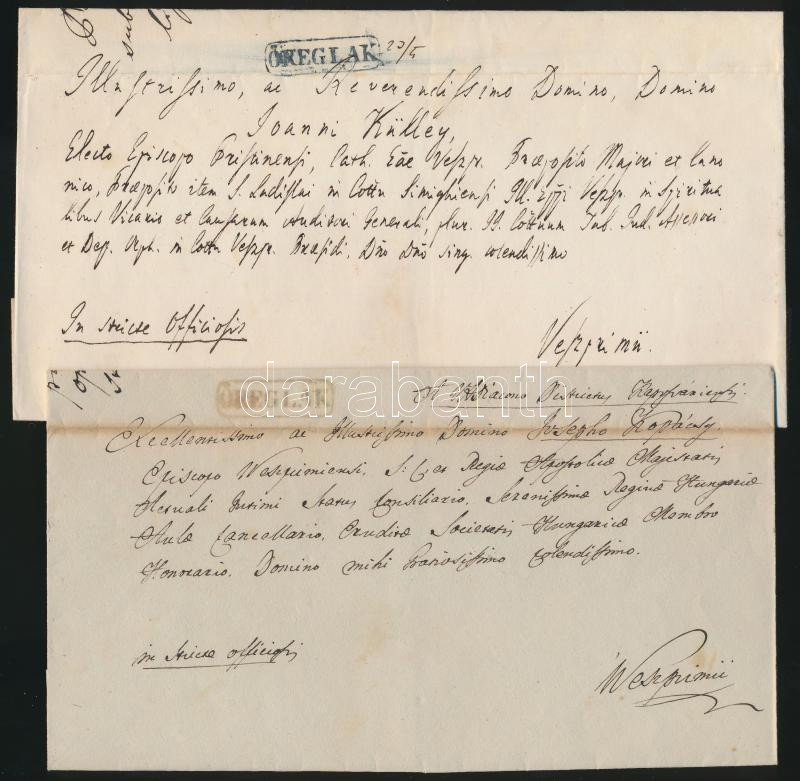 ÖREGLAK 23/5
Illustrissimo, ac Reverendissimo Domino, Domino
Joanni Külley,
Electo Episcopo Pristinensi, Cath. Eae Veszpr. Praeposito Majori et Cano
nico, Praeposito item S. Ladislai in Cottu Simighiensi Ill. Eppi Veszpr. in Spiritua
libus Vicario et Causarum Auditori Generali, plur. II. Cottuum Tab. Jud. Assessori
et Dep. Orph. in Cottu Veszpr. Praesidi, Dno Dno sing. colendissimo
In stricte Officiosis
Veszprimii.
ÖREGLAK
A VADiacono Districtus Kaposváriensis.
Excellentissimo ac Illustrissimo Domino Josepho Kopácsy,
Episcopo Weszprimiensi, S: C. et Regiae Apostolicae Majestatis
Actuali Intimi Status Consiliario, Serenissimae Reginae Hungariae
Aulae Cancellario, Eruditae Societatis Hungaricae Membro
Honorario, Domino mihi Gratiosissimo Colendissimo.
in stricte officiosis
Weszprimii
darabanth